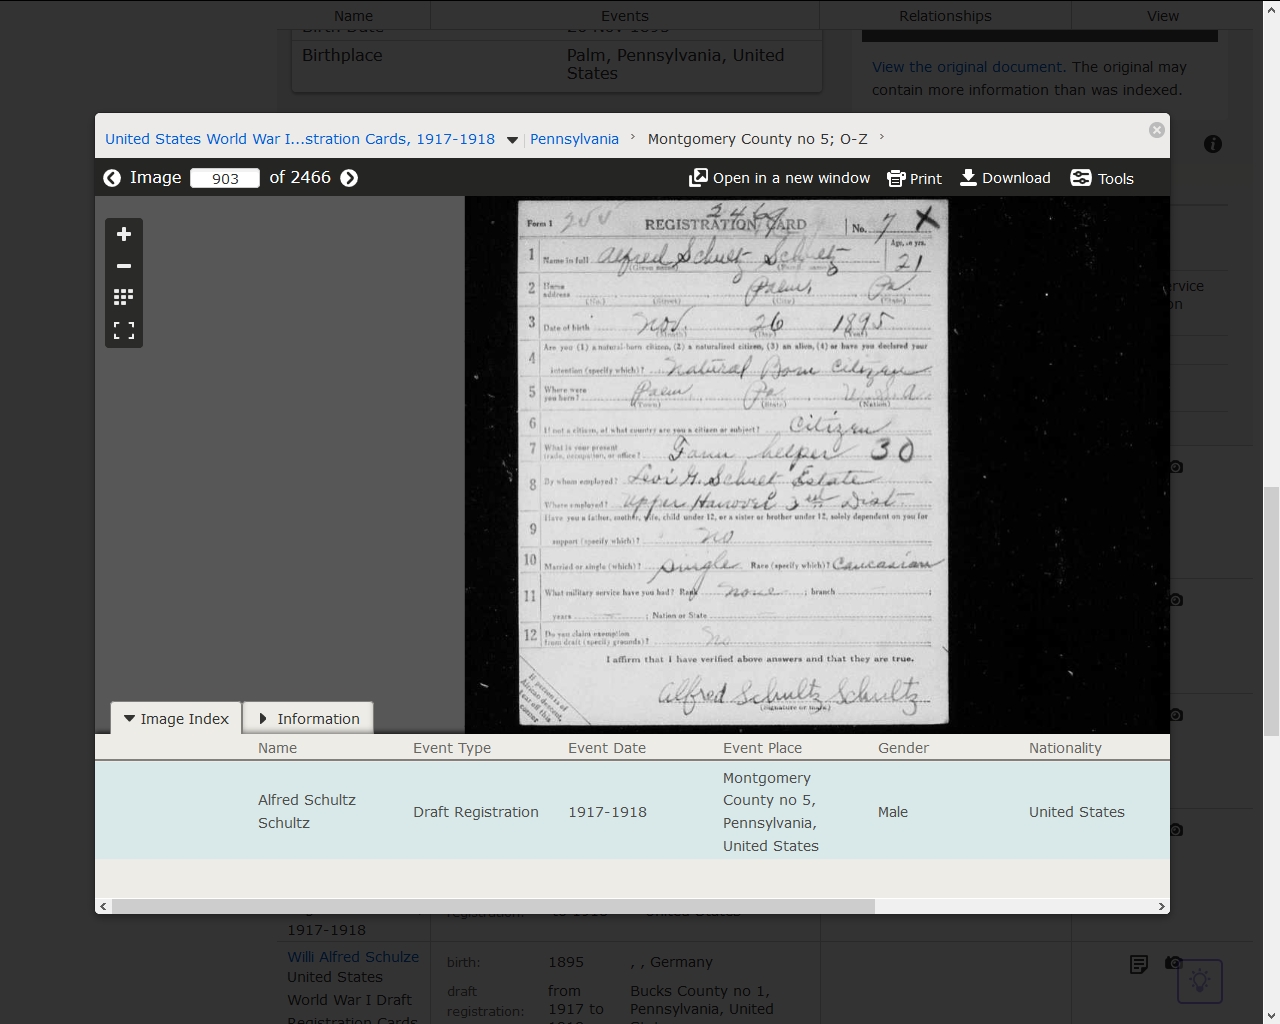 Name Events Relationships View
Birth Date 26 Nov 1895
Birthplace Palm, Pennsylvania, United
States
View the original document. The original may
contain more information than was indexed.
United States World War I...stration Cards, 1917-1918 Pennsylvania › Montgomery County no 5; O-Z ›
Image 903 of 2466 Open in a new window Print Download Tools
Form 1 REGISTRATION CARD No. 7 X
Age, in yrs.
1 Name in full Alfred Schultz Schultz 21
(Given name) (Family name)
2 Home address Palm, Pa.
(No.) (Street) (City) (State)
3 Date of birth Nov. 26 1895
(Month) (Day) (Year)
4 Are you (1) a natural-born citizen, (2) a naturalized citizen, (3) an alien, (4) or have you declared your
intention (specify which)? Natural Born Citizen
5 Where were you born? Palm Pa U.S.A.
(Town) (State) (Nation)
6 If not a citizen, of what country are you a citizen or subject? Citizen
7 What is your present trade, occupation, or office? Farm helper 30
8 By whom employed? Levi G. Schultz Estate
Where employed? Upper Hanover 3rd Dist.
9 Have you a father, mother, wife, child under 12, or a sister or brother under 12, solely dependent on you for
support (specify which)? no
10 Married or single (which)? Single Race (specify which)? Caucasian
11 What military service have you had? Rank none ; branch ;
years ; Nation or State
12 Do you claim exemption from draft (specify grounds)? No
I affirm that I have verified above answers and that they are true.
Alfred Schultz Schultz
(Signature or mark)
If person is of
African descent,
tear off this
corner
Image Index Information
Name Event Type Event Date Event Place Gender Nationality
Alfred Schultz
Schultz Draft Registration 1917-1918 Montgomery
County no 5,
Pennsylvania,
United States Male United States
registration: to 1918 United States
1917-1918
Willi Alfred Schulze birth: 1895 , , Germany
United States
World War I Draft draft from Bucks County no 1,
Registration Cards registration: 1917 to Pennsylvania, United
1918